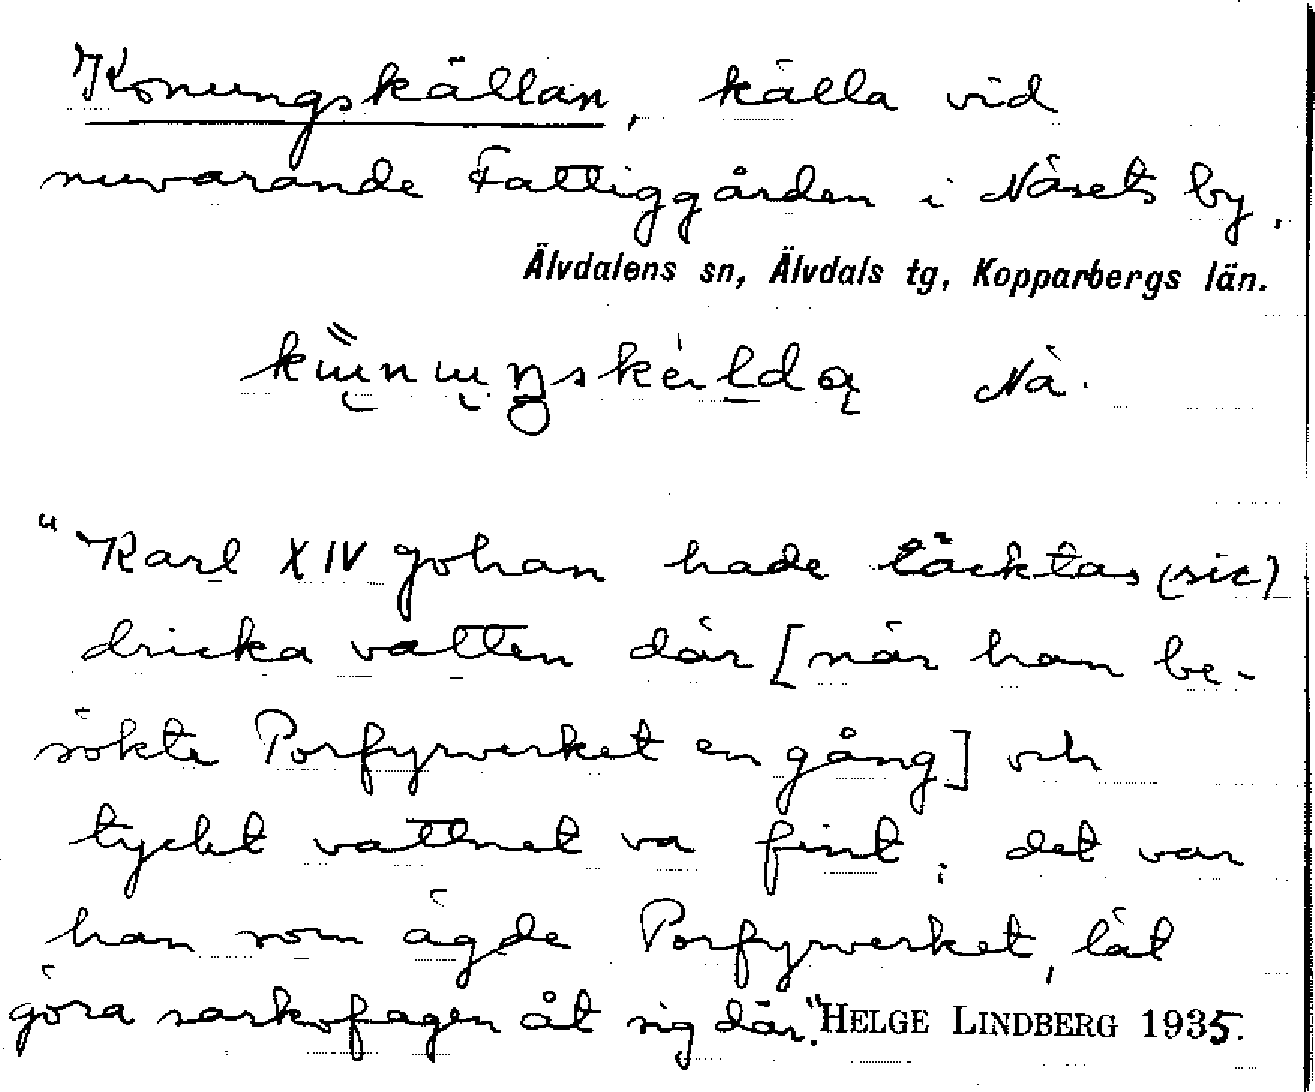 Konungskällan, källa vid
nuvarande Fattiggården i Näsets by.
Älvdalens sn, Älvdals tg, Kopparbergs län.
Nä.
"Karl XIV Johan hade täcktas (sic)
dricka vatten där [när han be-
sökte Porfyrverket en gång] och
tyckt vattnet va fint; det var
han som ägde Porfyrverket, lät
göra sarkofagen åt sig där." HELGE LINDBERG 1935.